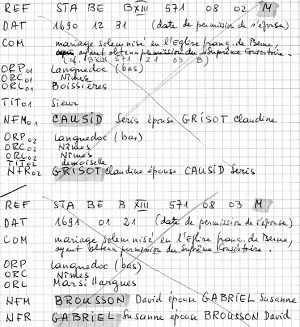 REF STA BE B XIII 571 08 02 M
DAT 1690 12 31 (date de permission de s'épouser)
COM mariage solemnisé en l'Eglise franç. de Berne,
ayant obtenu permission du Suprême Consistoire.
(cf. B XIII 571 21 03 B)
ORP01 Languedoc (bas)
ORC01 Nîmes
ORL01 Boissières
TIT01 Sieur
NFM01 CAUSID Seris épouse GRISOT Claudine
ORP02 Languedoc (bas)
ORC02 Nîmes
ORL02 Nîmes
TIT02 demoiselle
NFR02 GRISOT Claudine épouse CAUSID Seris
REF STA BE B XIII 571 08 03 M
DAT 1691 01 21 (date de permission de s'épouser)
COM mariage solemnisé en l'Eglise franç. de Berne,
ayant obtenu permission du Suprême Consistoire.
ORP Languedoc (bas)
ORC Nîmes
ORL Marsillargues
NFM BROUSSON David épouse GABRIEL Susanne
NFR GABRIEL Susanne épouse BROUSSON David